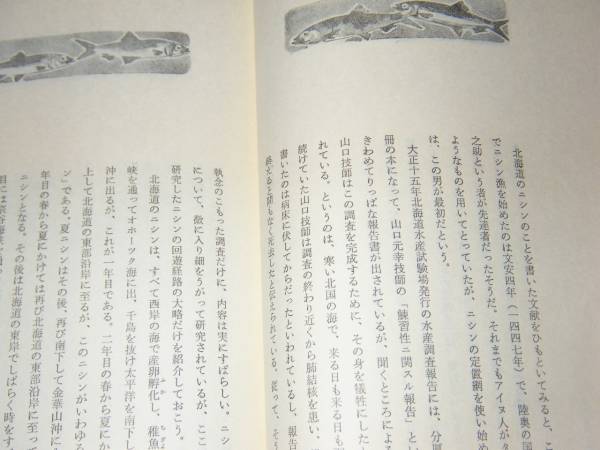 北海道のニシンのことを書いた文献をひもといてみると、こ
でニシン漁を始めたのは文安四年（一四四七年）で、陸奥の国
之助という者が先達者だったそうだ。それまでもアイヌ人がタ
ようなものを用いてとっていたが、ニシンの定置網を使い始め
は、この男が最初だという。
大正十五年北海道水産試験場発行の水産調査報告には、分厚
冊の本になって、山口元幸技師の「鰊習性ニ関スル報告」とい
きわめてりっぱな報告書が出されているが、聞くところによる
山口技師はこの調査を完成するために、その身を犠牲にした
れている。というのは、寒い北国の海で、来る日も来る日も
続けていた山口技師は調査の終わり近くから肺結核を患い、
書いたのは病床に伏してからだったといわれているし、報告
終えると間もなく死去したと伝えられている。従って、そう
執念のこもった調査だけに、内容は実にすばらしい。ニシ
について、微に入り細をうがって研究されているが、ここ
研究したニシンの回遊経路の大略だけを紹介しておこう。
北海道のニシンは、すべて西岸の海で産卵孵化し、稚魚
峡を通ってオホーツク海に出、千島を抜け太平洋を南下し
沖に出るが、これが一年目である。二年目の春から夏にか
上して北海道の東部沿岸に至るが、このニシンがいわゆる
ン」である。夏ニシンはその後、再び南下して金華山沖に
年目の春から夏にかけては再び北海道の東部沿岸に至って
ニシンとなる。その後は北海道の東岸でしばらく時をす
目には宗谷海峡に